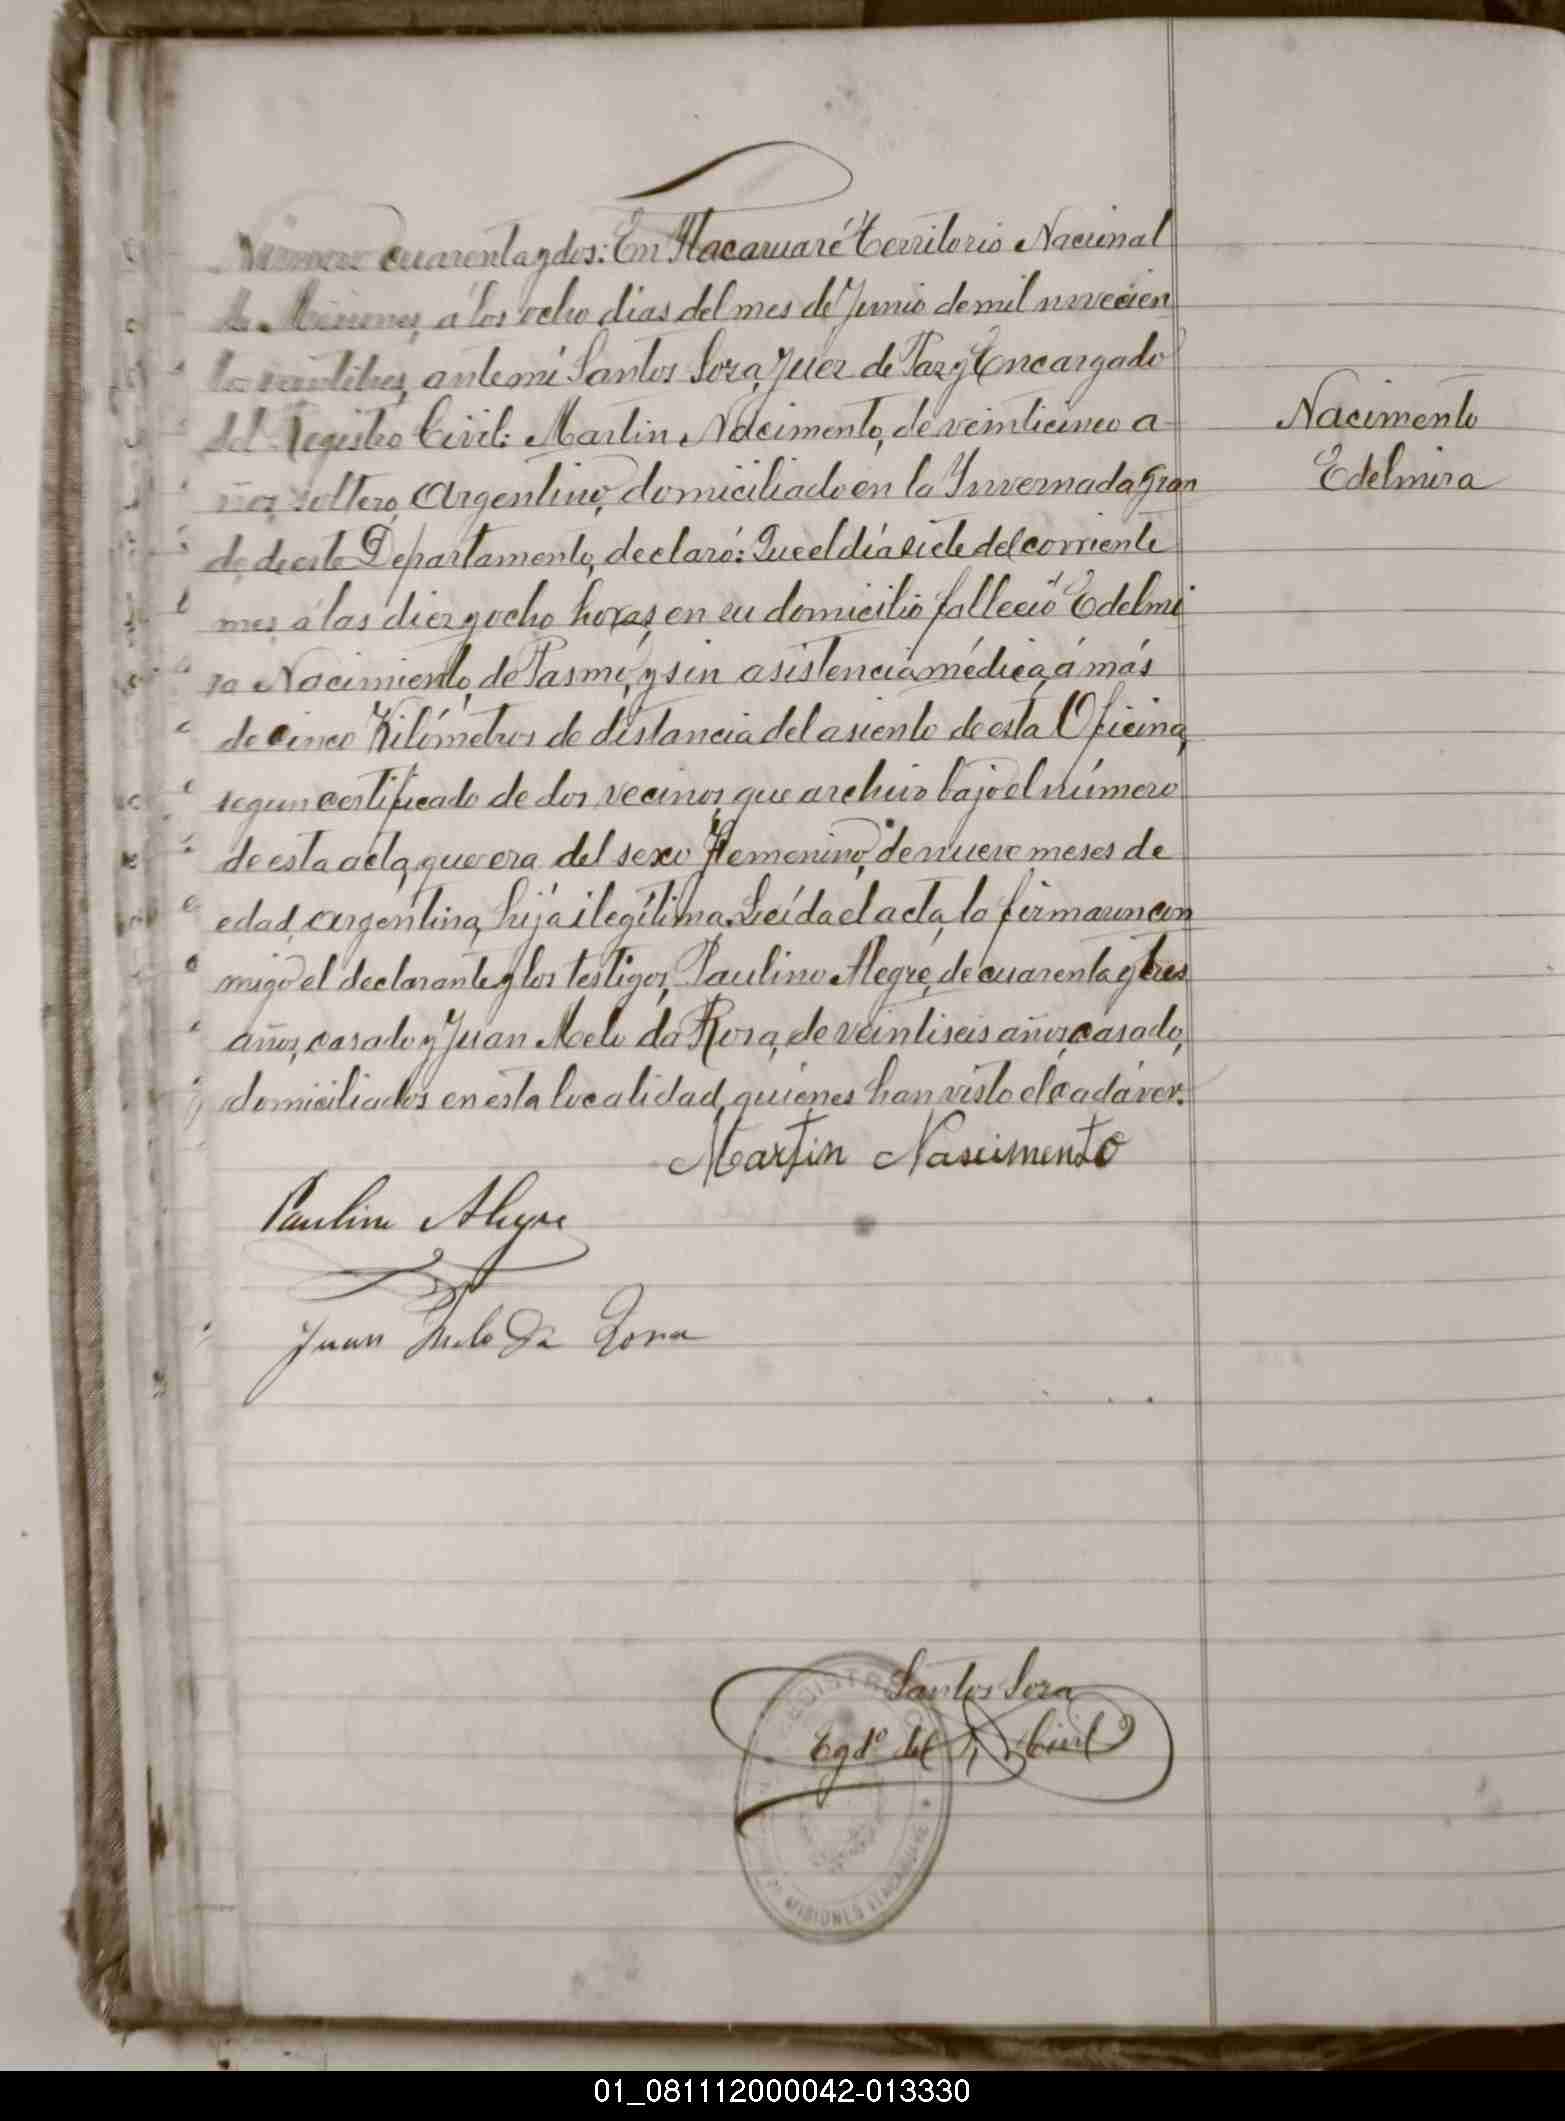 Número cuarenta y dos: En Itacaruaré Territorio Nacional
de Misiones, á los ocho dias del mes de Junio de mil novecien
tos veintitres, ante mi Santos Sosa, Juez de Paz y Encargado
del Registro Civil: Martin Nacimento, de veinticinco a-
ños, soltero, Argentino, domiciliado en la Invernada Gran
de de este Departamento, declaró: Que el día siete del corriente
mes á las diez y ocho horas, en su domicilio falleció Edelmi
ra Nacimiento, de Pasmo, y sin asistencia médica, á más
de cinco Kilómetros de distancia del asiento de esta Oficina,
segun certificado de dos vecinos, que archivo bajo el número
de esta acta, que era del sexo Femenino, de nueve meses de
edad, argentina, hija ilegítima. Leída el acta, la firmaron con
migo el declarante y los testigos, Paulino Alegre, de cuarenta y tres
años, casado y Juan Melo da Rosa, de veintiseis años, casado,
domiciliados en esta localidad, quienes han visto el cadáver.
Nacimento
Edelmira
Martin Nascimento
Paulino Alegre
Juan Melo Da Rosa
Santos Sosa
Egdo del R. Civil
REGISTRO
MISIONES ITACARUARE
01_081112000042-013330